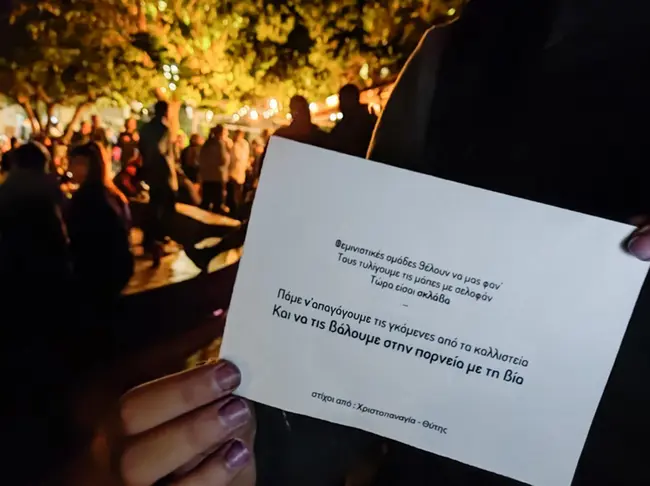 Φεμινιστικές ομάδες θέλουν να μας φαν'
Τους τυλίγουμε τις μάπες με σελοφάν
Τώρα είσαι σκλάβα
–
Πάμε ν'απαγάγουμε τις γκόμενες από τα καλλιστεία
Και να τις βάλουμε στην πορνεία με τη βία
στίχοι από : Χριστοπαναγία - Θύτης